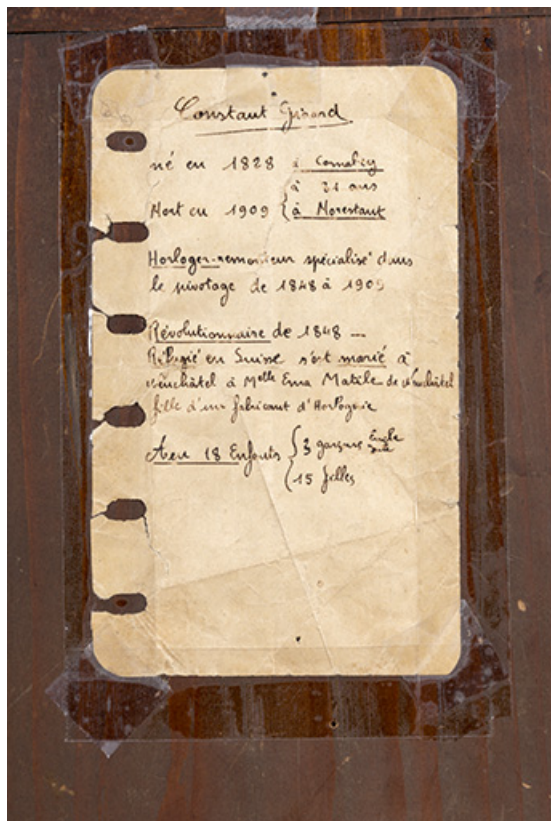 Constant Girard
né en 1828 à Cornabey
à 81 ans
Mort en 1909 { à Morestant
Horloger-remonteur spécialisé dans
le pivotage de 1848 à 1909
Révolutionnaire de 1848 —
Réfugié en Suisse s'est marié à
Neuchâtel à Melle Ema Matile de Neuchâtel
fille d'un fabricant d'Horlogerie
A eu 18 Enfants { 3 garçons
15 filles